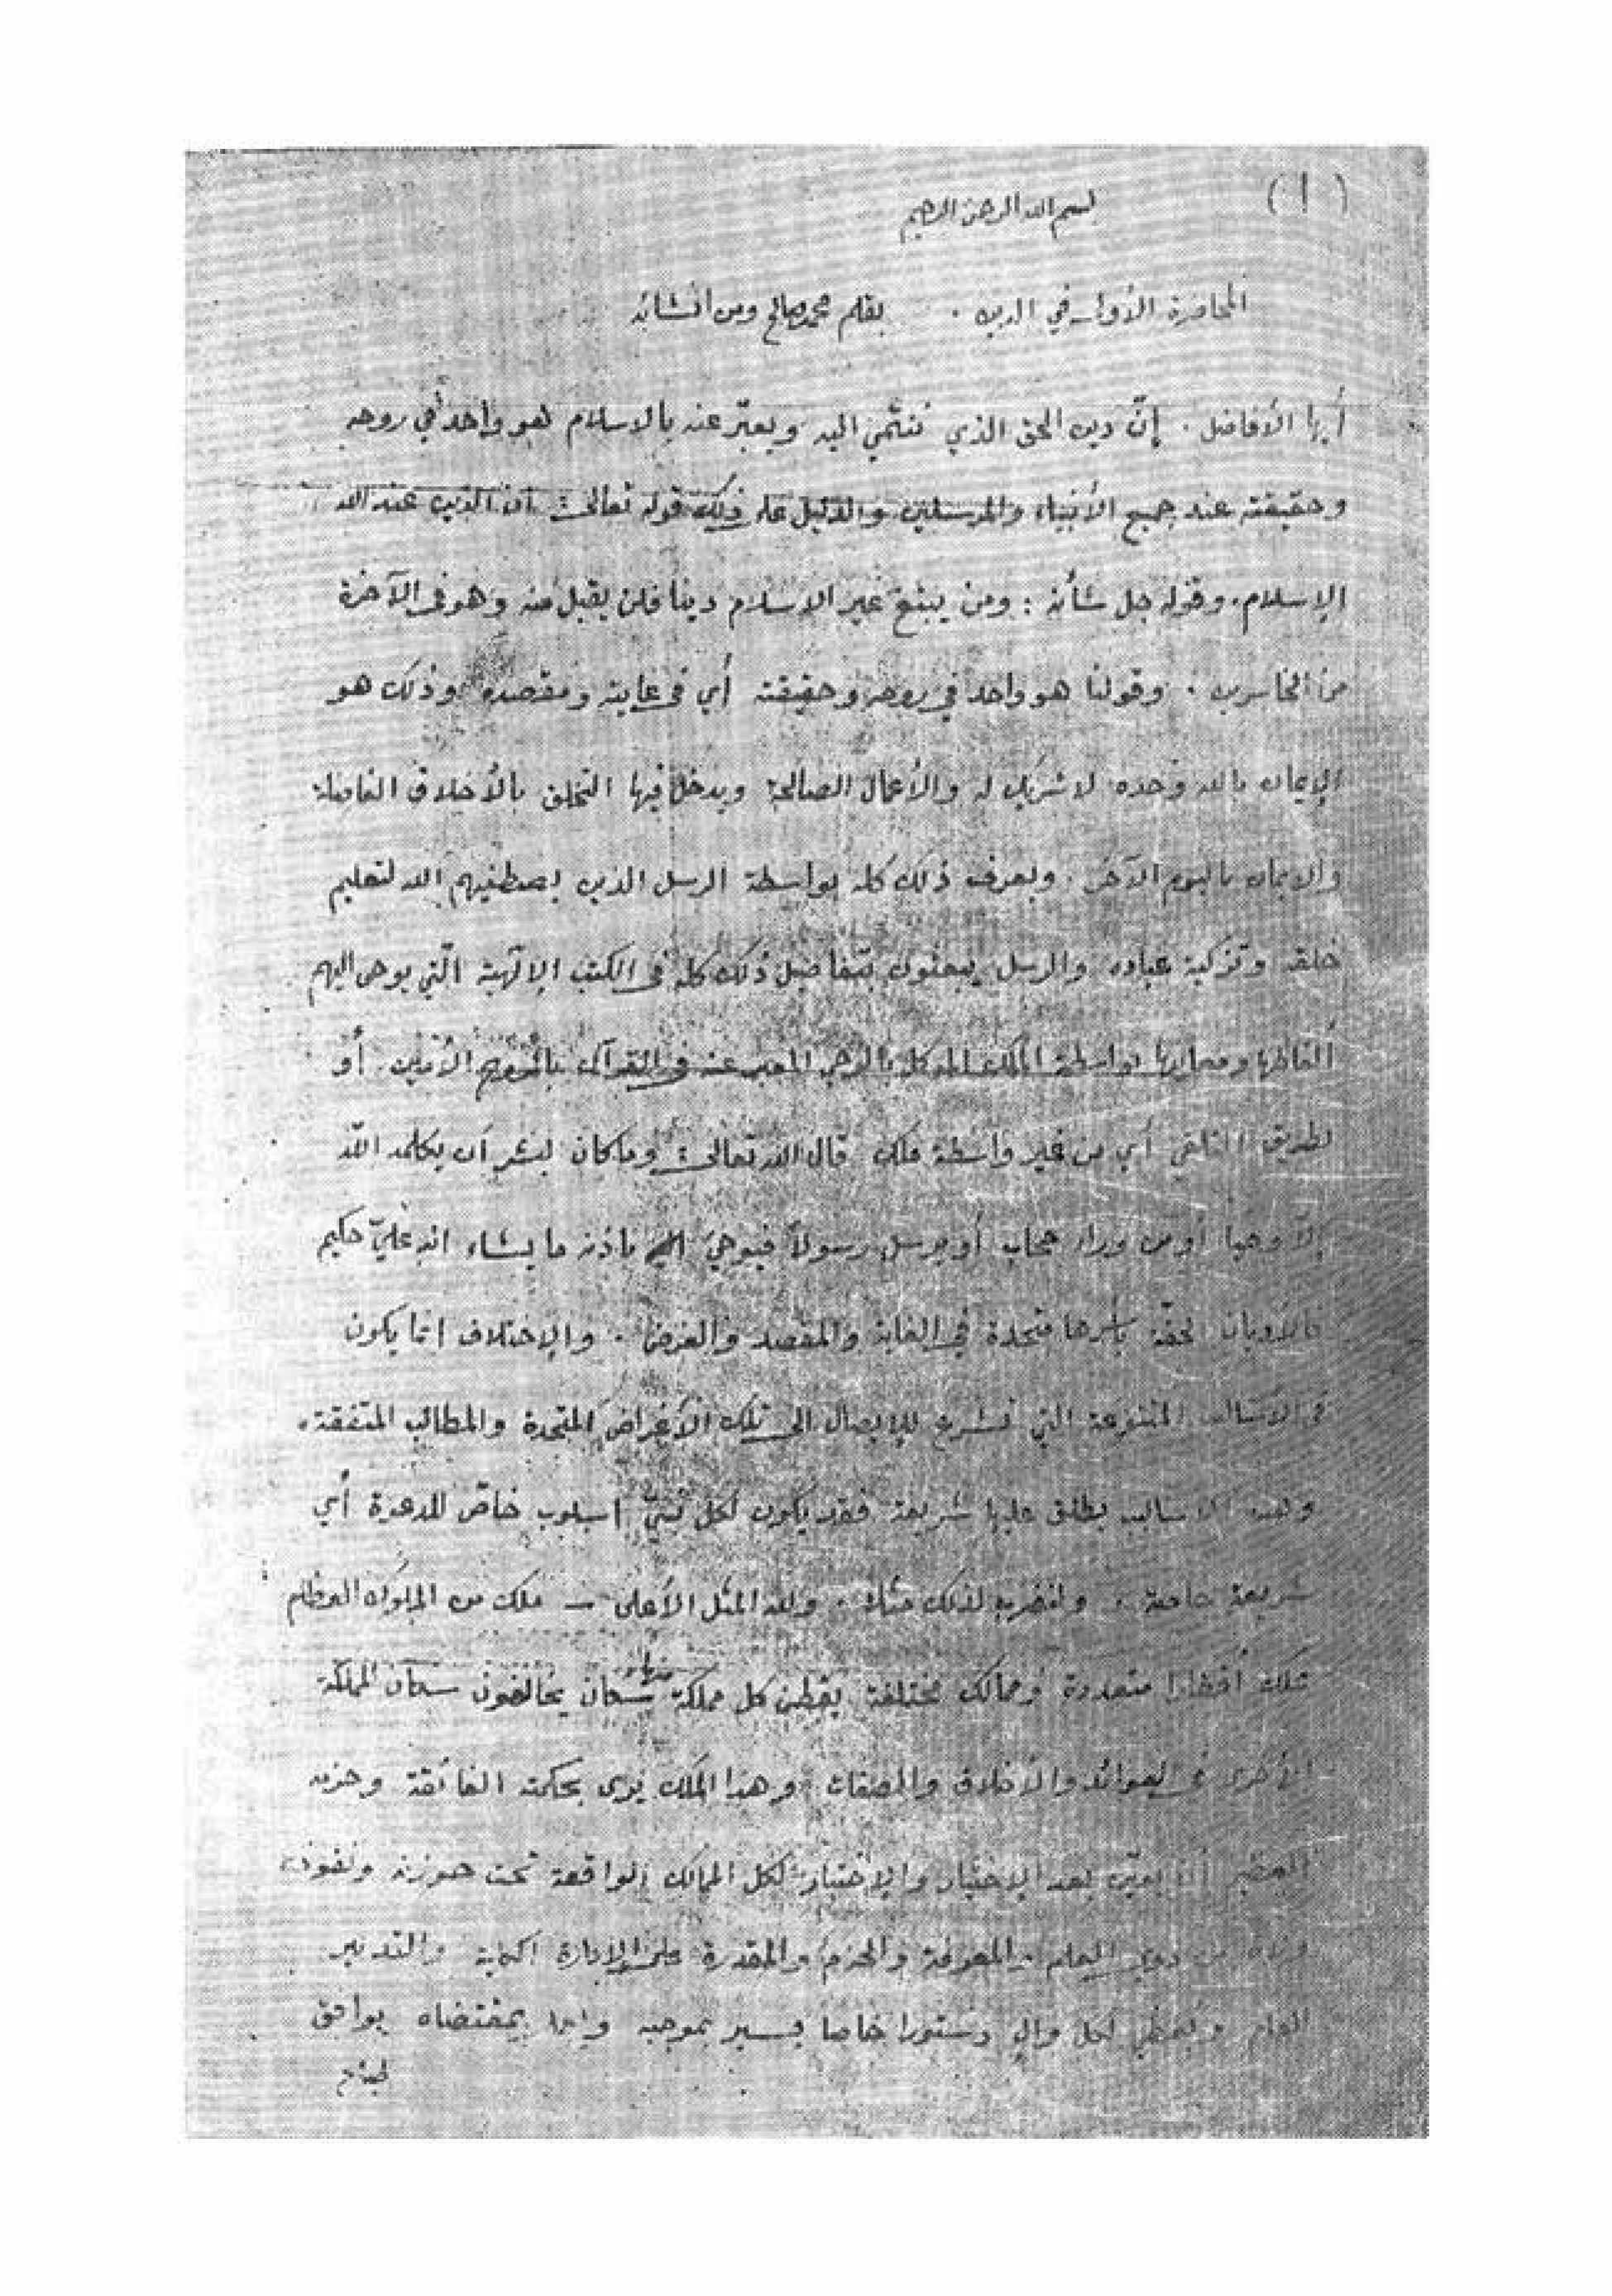 ( ١ )
بسم الله الرحمن الرحيم
المحاضرة الأولى في الدين . بقلم محمد صالح ومن انشائه
أيها الأفاضل . إنّ دين الحق الذي ننتمي اليه ويعبّر عنه بالاسلام هو واحد في روحه
وحقيقته عند جميع الأنبياء والمرسلين والدليل على ذلك قوله تعالى : ان الدين عند الله
الإسلام . وقوله جل شأنه : ومن يبتغ غير الاسلام دينا فلن يقبل منه وهو في الآخرة
من الخاسرين . وقولنا هو واحد في روحه وحقيقته أي في غايته ومقصده وذلك هو
الإيمان بالله وحده لا شريك له والأعمال الصالحة ويدخل فيها التخلق بالأخلاق الفاضلة
والايمان باليوم الآخر . ويعرف ذلك كله بواسطة الرسل الذين يصطفيهم الله لتعليم
خلقه وتزكية عباده والرسل يبعثون بتفاصيل ذلك كله في الكتب الإلٓهية الّتي يوحى اليهم
ألفاظها ومعانيها بواسطة الملك الموكل بالوحي المعبر عنه في القرآن بالروح الأمين . أو
بطريق التلقي أي من غير واسطة ملك قال الله تعالى : وما كان لبشر أن يكلمه الله
إلّا وحيا أو من وراء حجاب أو يرسل رسولاً فيوحيَ باذنه ما يشاء انه عليّ حكيم
فالأديان الحقّة بأسرها متحدة في الغاية والمقصد والغرض . والإختلاف انما يكون
في الأساليب المتنوعة التي تشرع للإيصال الى تلك الأغراض المتحدة والمطالب المتفقة .
وهذه الاساليب يطلق عليها شريعة فقد يكون لكل نبيّ اسلوب خاصّ للدعوة أي
شريعة خاصة . ولنضرب لذلك مثلا . ولله المثل الأعلى – ملك من الملوك العظام
تملك أقطارا متعددة وممالك مختلفة يقطن كل مملكة منها سكان يخالفون سكان المملكة
الأخرى في العوائد والأخلاق والصفات وهذا الملك يرى بحكمته الفائقة وحزمه
أن يعيّن بعد الإختبار والإختيار لكل الممالك الواقعة تحت حوزته ونفوذه
ولاة من ذوي العلم والمعرفة والحزم والمقدرة على الإدارة والتدبير
العام ويعطي لكل والٍ دستورا خاصا يسير بموجبه بمقتضاه يوافق